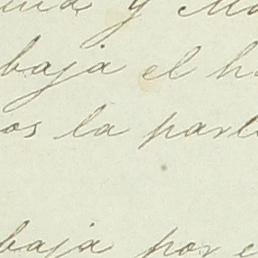 y
baja el h
os la part
baja por e